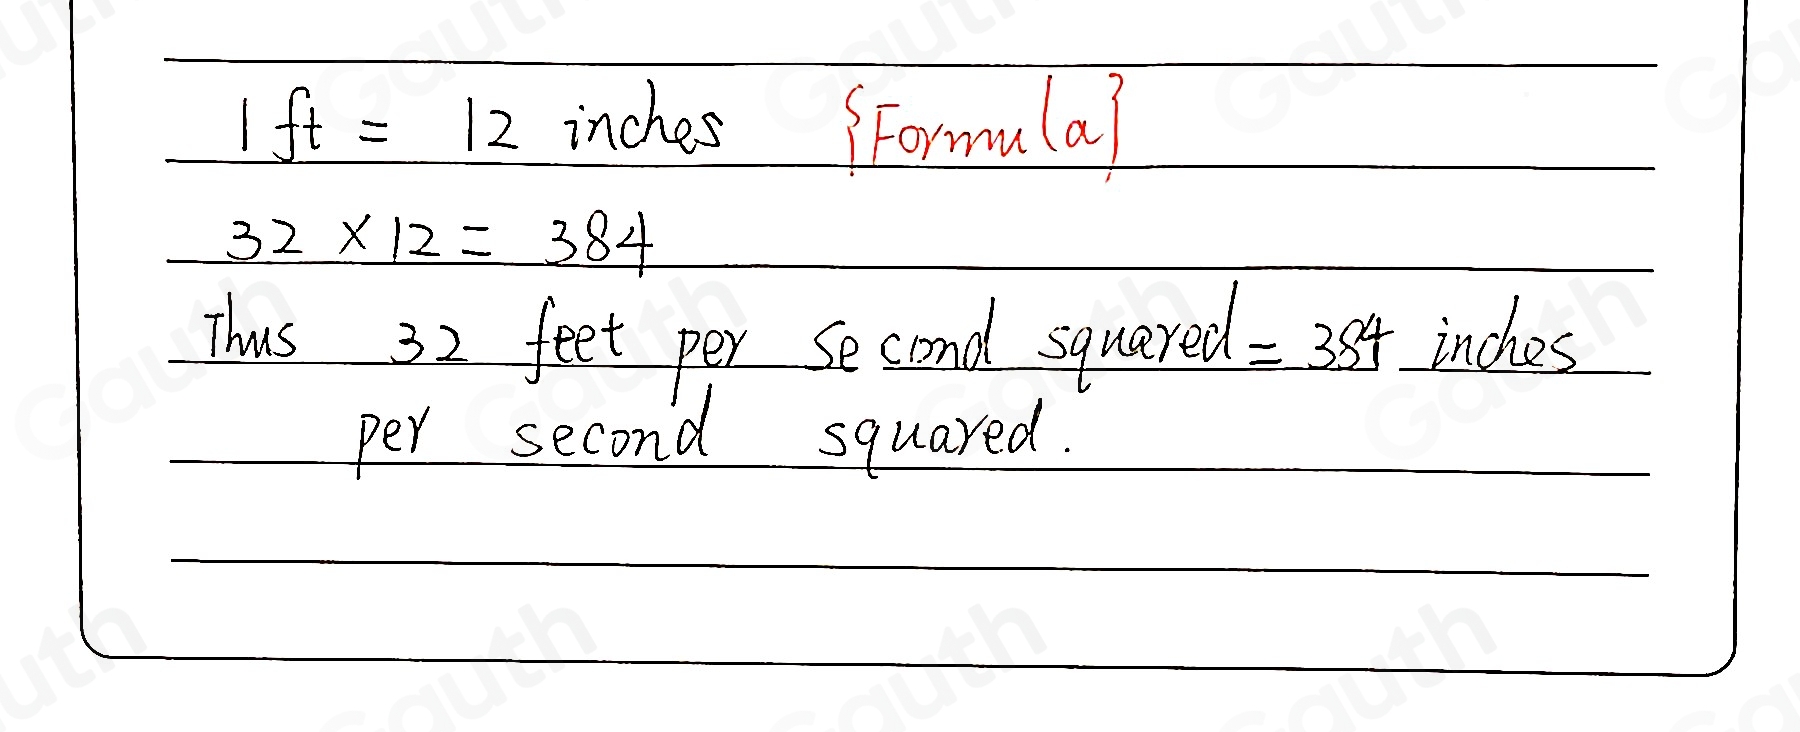 1 ft = 12 inches {Formula}
32 × 12 = 384
Thus 32 feet per second squared = 384 inches
per second squared.